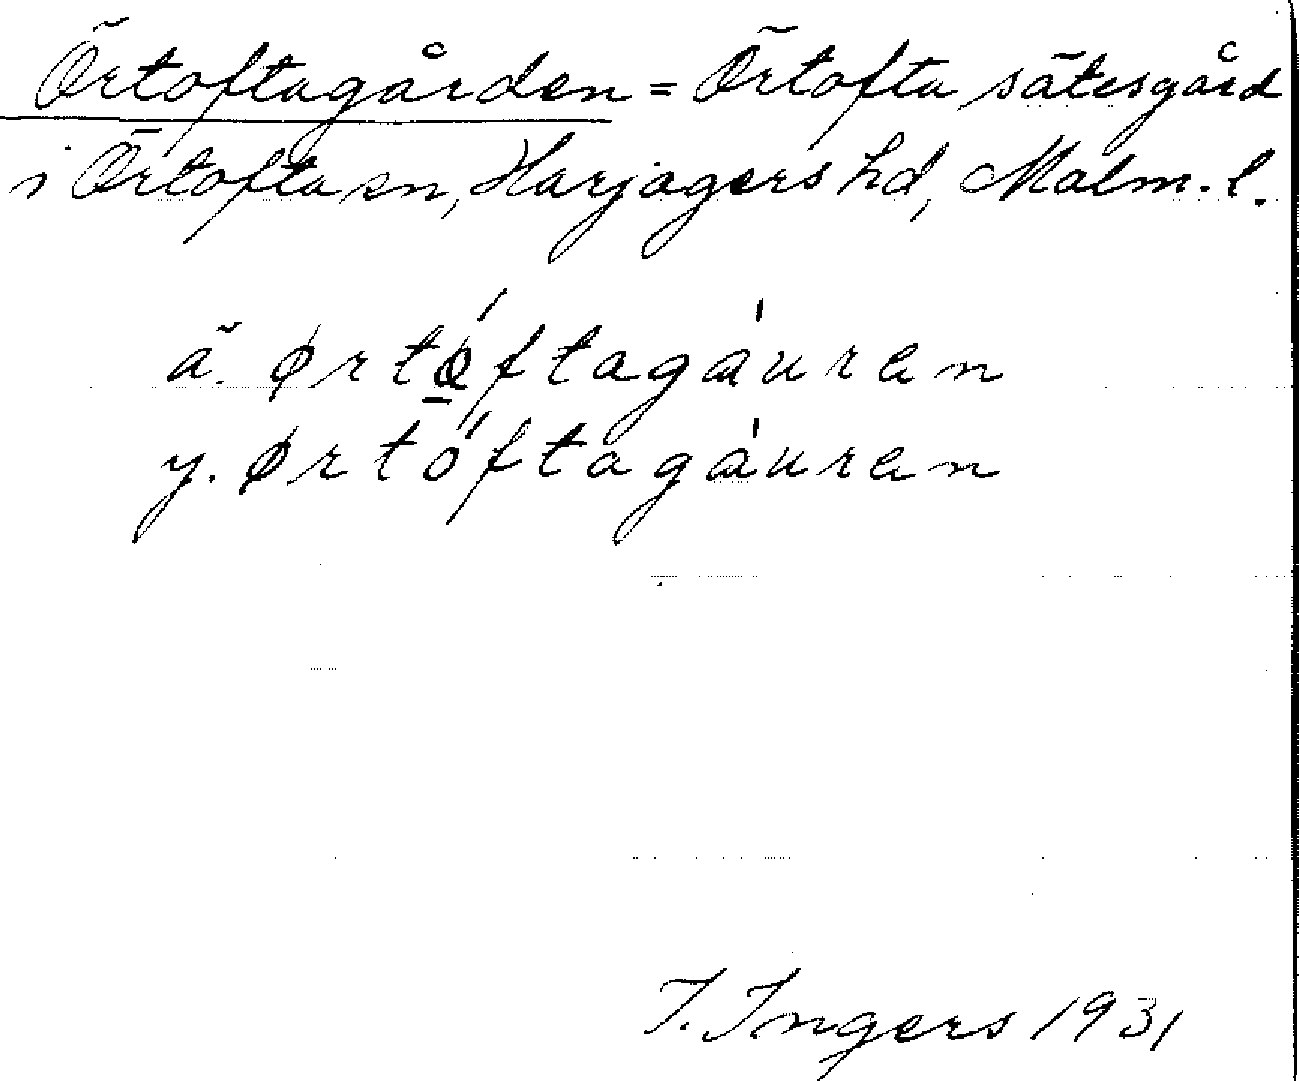 Örtoftagården = Örtofta sätesgård
i Örtofta sn, Harjagers hd, Malm. l.
ä. ørtǿftagáuren
y. ørtóftagáuren
I. Ingers 1931